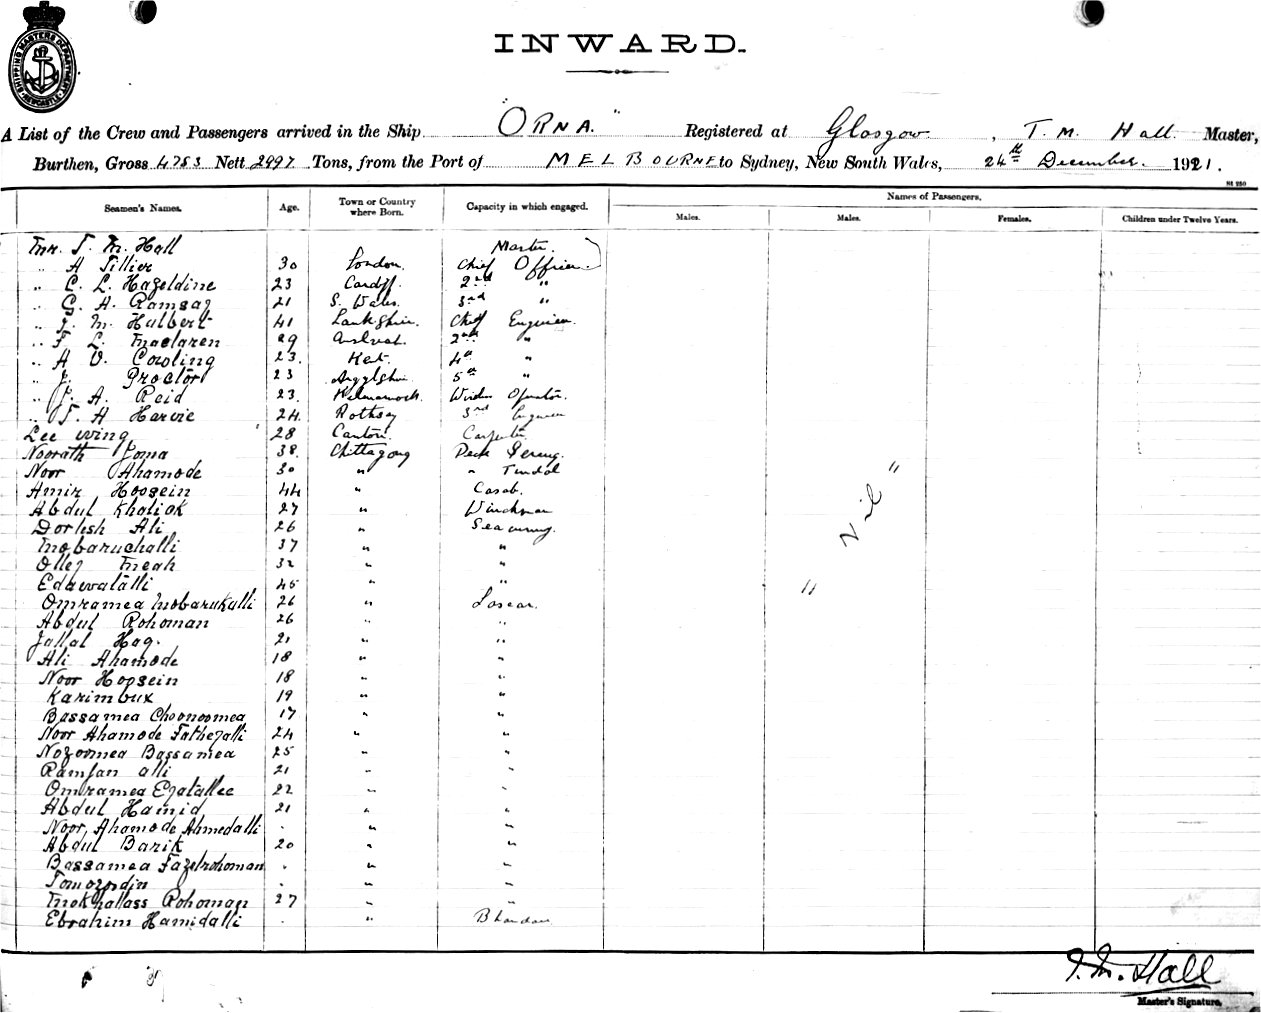 SHIPPING MASTERS DEPARTMENT NEWCASTLE
INWARD.
A List of the Crew and Passengers arrived in the Ship "ORNA." Registered at Glasgow, T. M. Hall Master,
Burthen, Gross 4783 Nett 2997 Tons, from the Port of MELBOURNE to Sydney, New South Wales, 24th December. 1921.
St 250
Seamen's Names. Age. Town or Country where Born. Capacity in which engaged. Names of Passengers.
Males. Males. Females. Children under Twelve Years.
Mr. T. M. Hall Master.
" A Tillier 30 London. Chief Officer.
" C. L. Hazeldine 23 Cardiff. 2nd "
" G. A. Ramsay 21 S. Wales. 3rd "
" J. M. Hulbert 41 Lankshire. Chief Engineer.
" F L. Maclaren 29 2nd "
" A V. Cowling 23. Kent. 4th "
" J. Proctor 23 Argylshire. 5th "
" J. A. Reid 23. Kilmarnock. Wireless Operator.
" T. A Harvie 24. Rothsay 3rd Engineer
Lee Wing 28 Canton. Carpenter.
Noorath Joma 38. Chittagong Deck Serang.
Noor Ahamode 30 " " Tindal
Amir Hoosein 44 " Casab.
Abdul Kholiok 27 " Winchman
Dorlesh Ali 26 " Seacunny.
Mobaruchalli 37 " "
Olley Meah 32 " "
Edawatalli 45 " "
Omramea Mobarukalli 26 " Lascar.
Abdul Rohoman 26 " "
Jallal Hag. 21 " "
Ali Ahamode 18 " "
Noor Hossein 18 " "
Karimbux 19 " "
Bassamea Choonoomea 17 " "
Noor Ahamode Fathezalli 24 " "
Nozoomea Bassamea 25 " "
Ramjan alli 21 " "
Omramea Ezatallee 22 " "
Abdul Hamid 21 " "
Noor Ahamode Ahmedalli . " "
Abdul Barik 20 " "
Bassamea Fazelrohoman . " "
Tomozodin . " "
Mokhallass Rohoman 27 " "
Ebrahim Hamidalli . " Bhandari
" Nil "
T. M. Hall
Master's Signature.